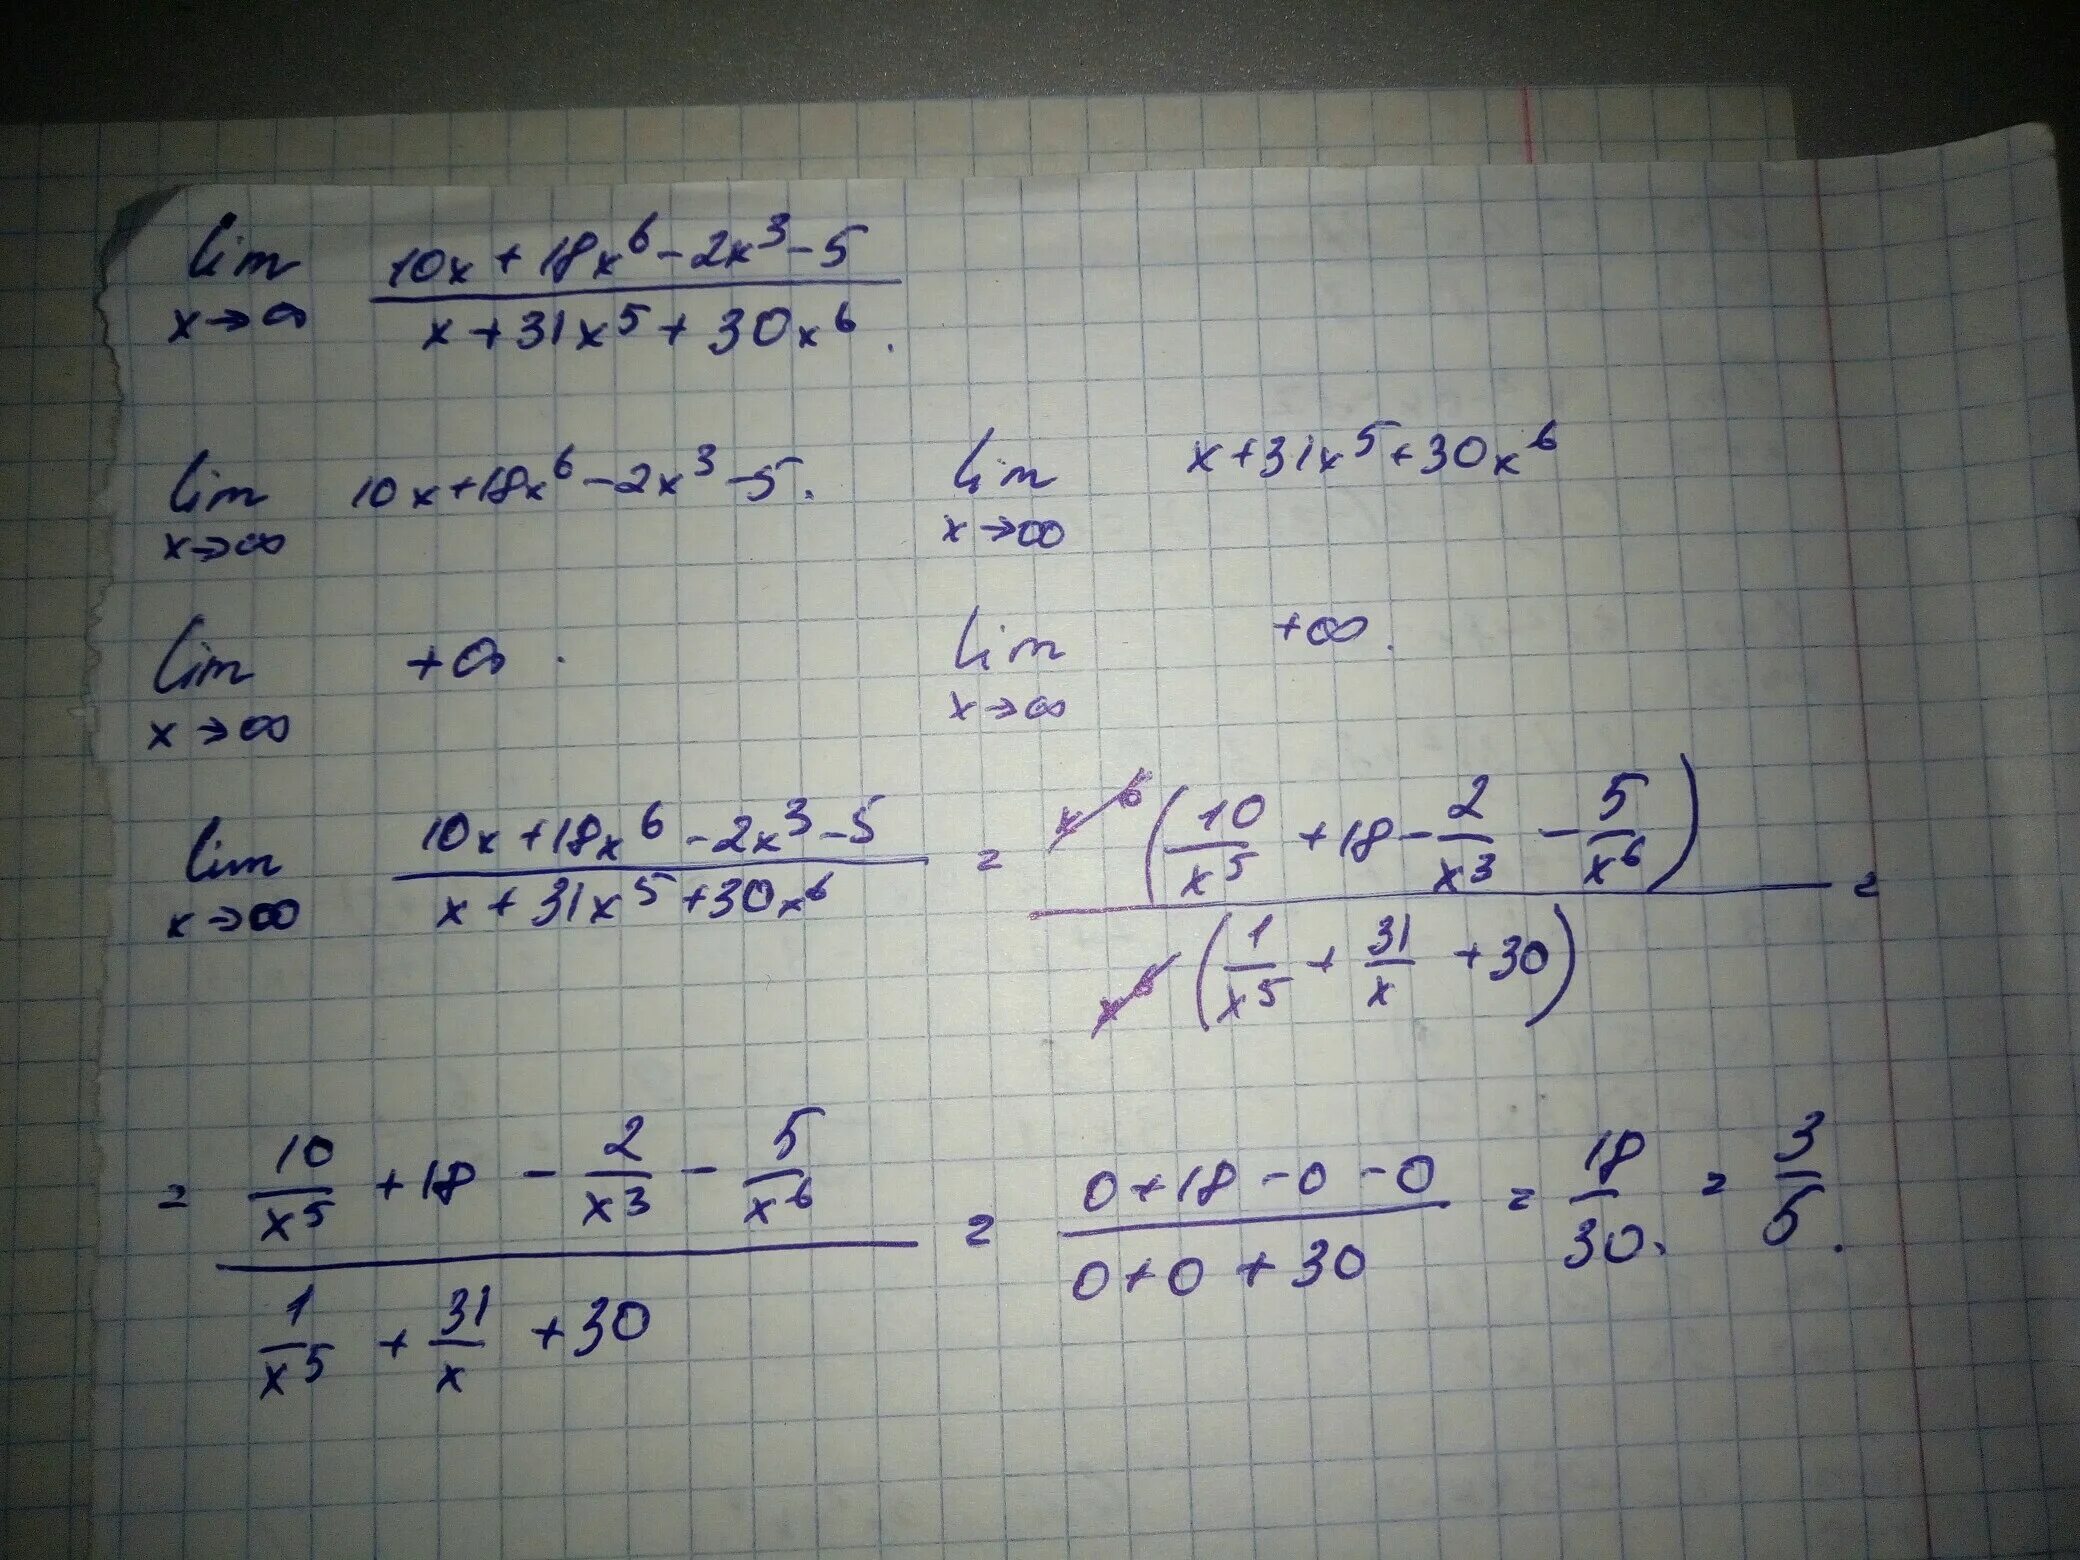 lim x→∞ (10x+18x^6-2x^3-5)/(x+31x^5+30x^6).
lim x→∞ 10x+18x^6-2x^3-5. lim x→∞ x+31x^5+30x^6
lim x→∞ +∞. lim x→∞ +∞.
lim x→∞ (10x+18x^6-2x^3-5)/(x+31x^5+30x^6) = x^6(10/x^5+18-2/x^3-5/x^6)/x^6(1/x^5+31/x+30) =
= (10/x^5+18-2/x^3-5/x^6)/(1/x^5+31/x+30) = (0+18-0-0)/(0+0+30) = 18/30. = 3/5.